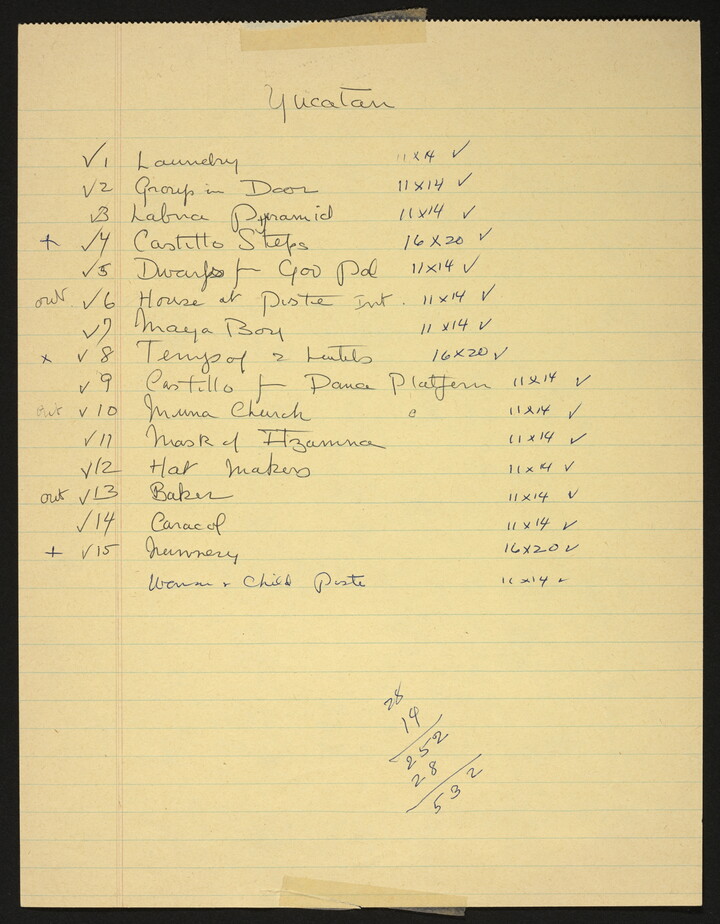 Yucatan
✓1 Laundry 11x14 ✓
✓2 Group in Door 11x14 ✓
✓3 Labna Pyramid 11x14 ✓
+ ✓4 Castillo Steps 16x20 ✓
✓5 Dwarfs fr Gov Pal 11x14 ✓
out ✓6 House at Piste Int. 11x14 ✓
✓7 Maya Boy 11x14 ✓
x ✓8 Temp of 2 Lintels 16x20 ✓
✓9 Castillo fr Dance Platform 11x14 ✓
out ✓10 Muna Church c 11x14 ✓
✓11 Mask of Itzamna 11x14 ✓
✓12 Hat Makers 11x14 ✓
out ✓13 Baker 11x14 ✓
✓14 Caracol 11x14 ✓
+ ✓15 Nunnery 16x20 ✓
Woman + Child Piste 11x14 ✓
28
19
252
28
532